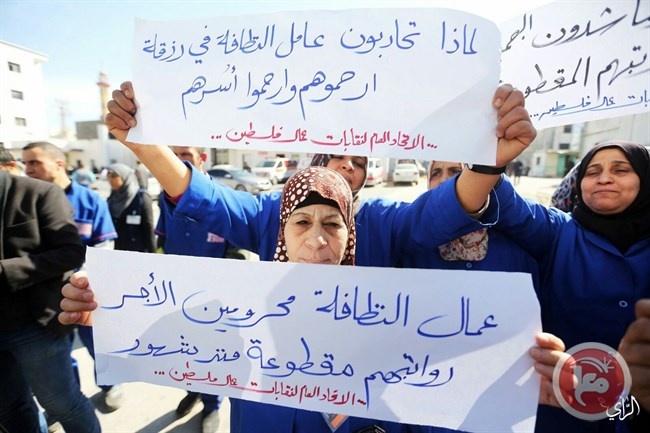 لماذا تحاربون عامل النظافة في رزقة
ارحموهم وارحموا أسرهم
الاتحاد العام لنقابات عمال فلسطين ...
يناشدون
رواتبهم المقطوعة
نقابات عمال فلسطين ...
عمال النظافة محرومين الأجر
رواتبهم مقطوعة منذ شهور
الاتحاد العام لنقابات عمال فلسطين ...
معا
الرأي